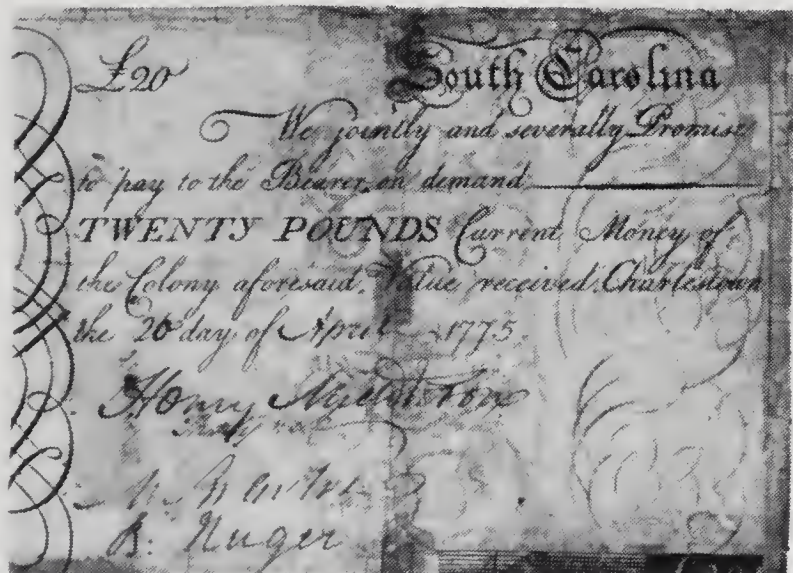 £20 South Carolina
We jointly and severally Promise
to pay to the Bearer on demand
TWENTY POUNDS Current Money of
the Colony aforesaid, Value received Charlestown
the 20 day of April 1775
Henry
B: Huger